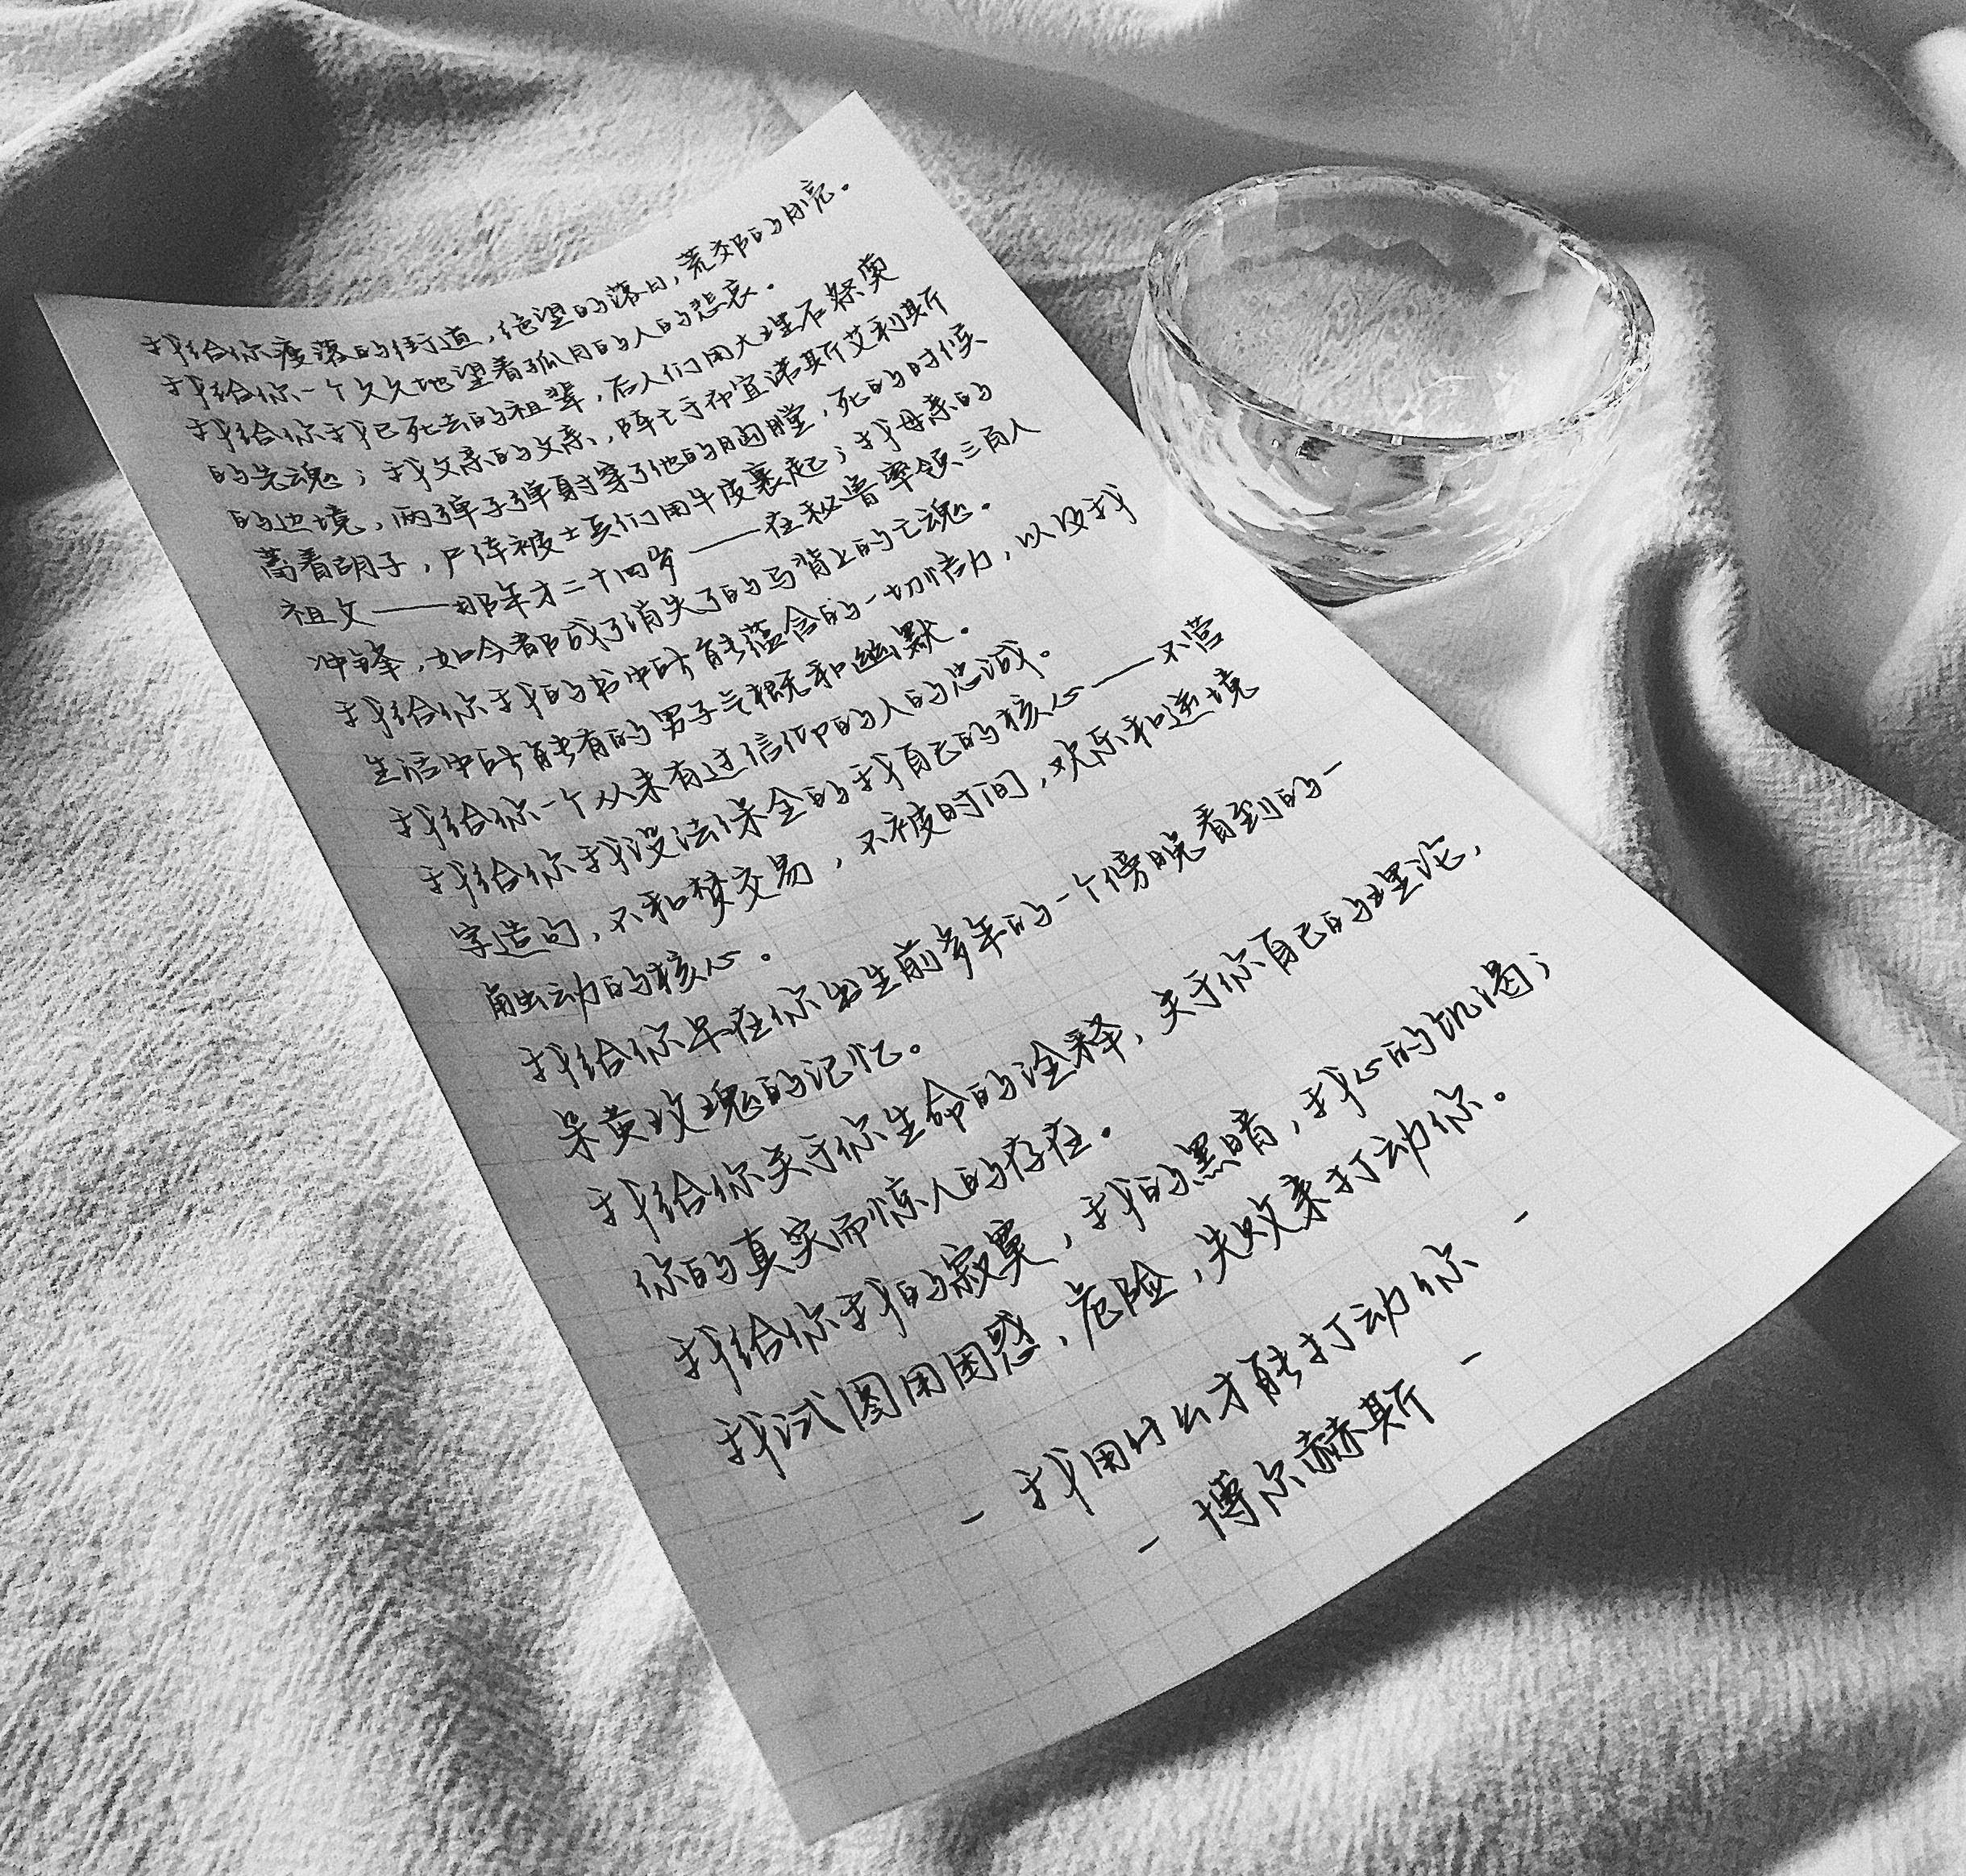 我给你瘦落的街道，绝望的落日，荒郊的月亮。
我给你一个久久地望着孤月的人的悲哀。
我给你我已死去的祖辈，后人们用大理石祭奠
的先魂；我父亲的父亲，阵亡于布宜诺斯艾利斯
的边境，两弹子弹射穿了他的胸膛，死的时候
蓄着胡子，尸体被士兵们用牛皮裹起；我母亲的
祖父——那年才二十四岁——在秘鲁率领三百人
冲锋，如今都成了消失了的马背上的亡魂。
我给你我的书中所能蕴含的一切悟力，以及我
生活中所能有的男子气概和幽默。
我给你一个从未有过信仰的人的忠诚。
我给你我没法保全的我自己的核心——不营
字造句，不和梦交易，不被时间，欢乐和逆境
触动的核心。
我给你早在你出生前多年的一个傍晚看到的一
朵黄玫瑰的记忆。
我给你关于你生命的诠释，关于你自己的理论，
你的真实而惊人的存在。
我给你我的寂寞，我的黑暗，我心的饥渴；
我试图用困惑、危险，失败来打动你。
- 我用什么才能打动你 -
- 博尔赫斯 -